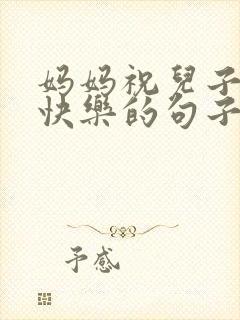 妈妈祝兒子
快樂的句子
予感